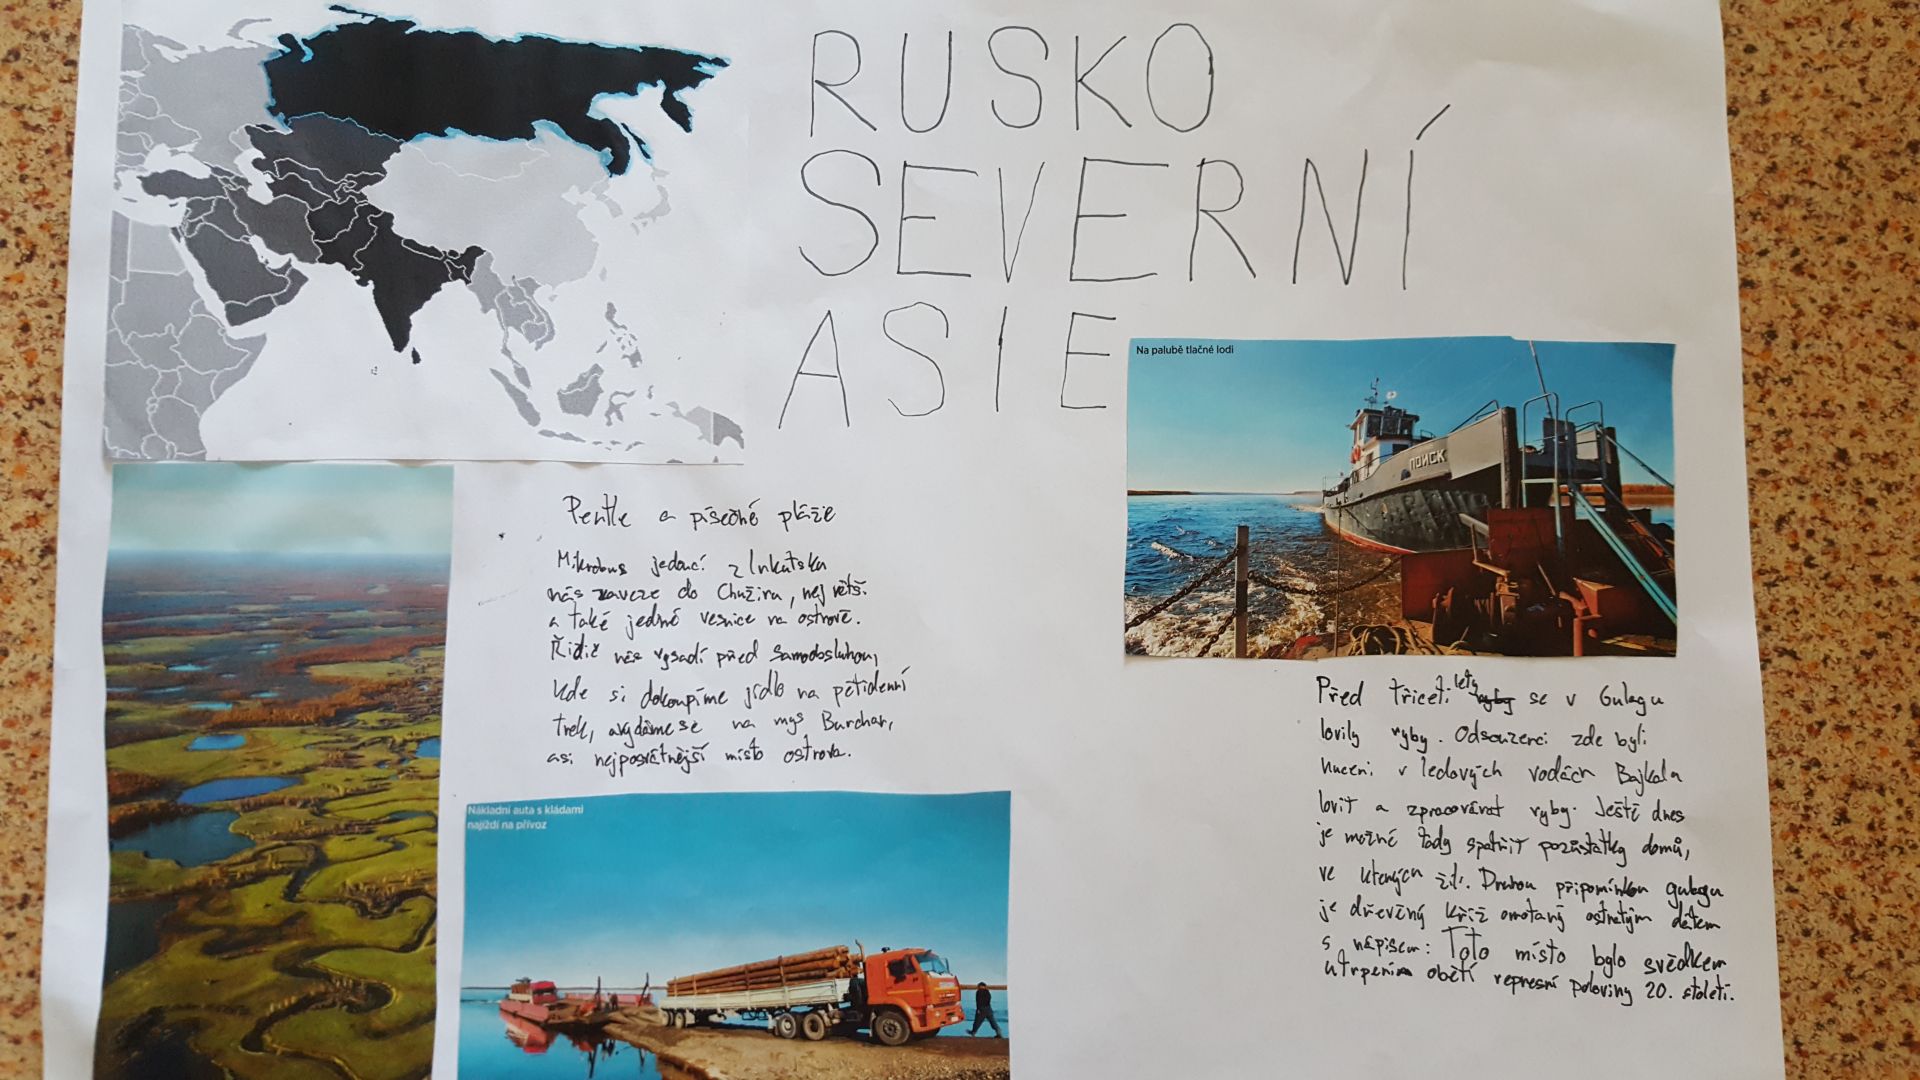 RUSKO
SEVERNÍ
ASIE
Na palubě tlačné lodi
ПОИСК
a písečné pláže
Mikrobus jedoucí z Irkutska
nás zaveze do Chužiru, největší
a také jedné vesnice na ostrově.
Řidič nás vysadí před samoobsluhou,
kde si dokoupíme jídlo na pětidenní
trek, a vydáme se na mys Burchan,
asi nejposvátnější místo ostrova.
Nákladní auta s kládami
najíždí na přívoz
Před třiceti lety se v Gulagu
lovily ryby. Odsouzenci zde byli
nuceni v ledových vodách Bajkalu
lovit a zpracovávat ryby. Ještě dnes
je možné tady spatřit pozůstatky domů,
ve kterých žili. Druhou připomínkou gulagu
je dřevěný kříž omotaný ostnatým drátem
s nápisem: Toto místo bylo svědkem
utrpení obětí represní poloviny 20. století.